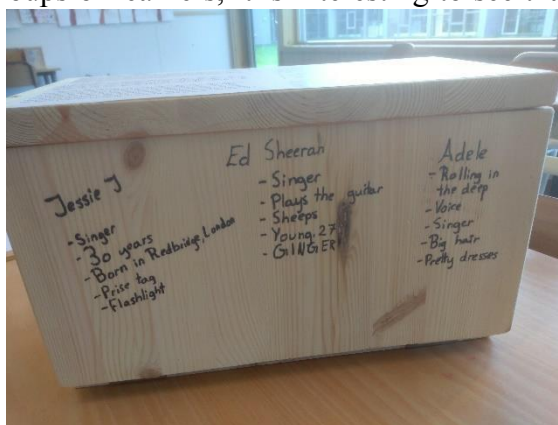 Jessie J
-Singer
-30 years
-Born in Redbridge, London
-Prise tag
-Flashlight
Ed Sheeran
-Singer
-Plays the guitar
-Sheeps
-Young. 27
-GINGER
Adele
-Rolling in
the deep
-Voice
-Singer
-Big hair
-Pretty dresses